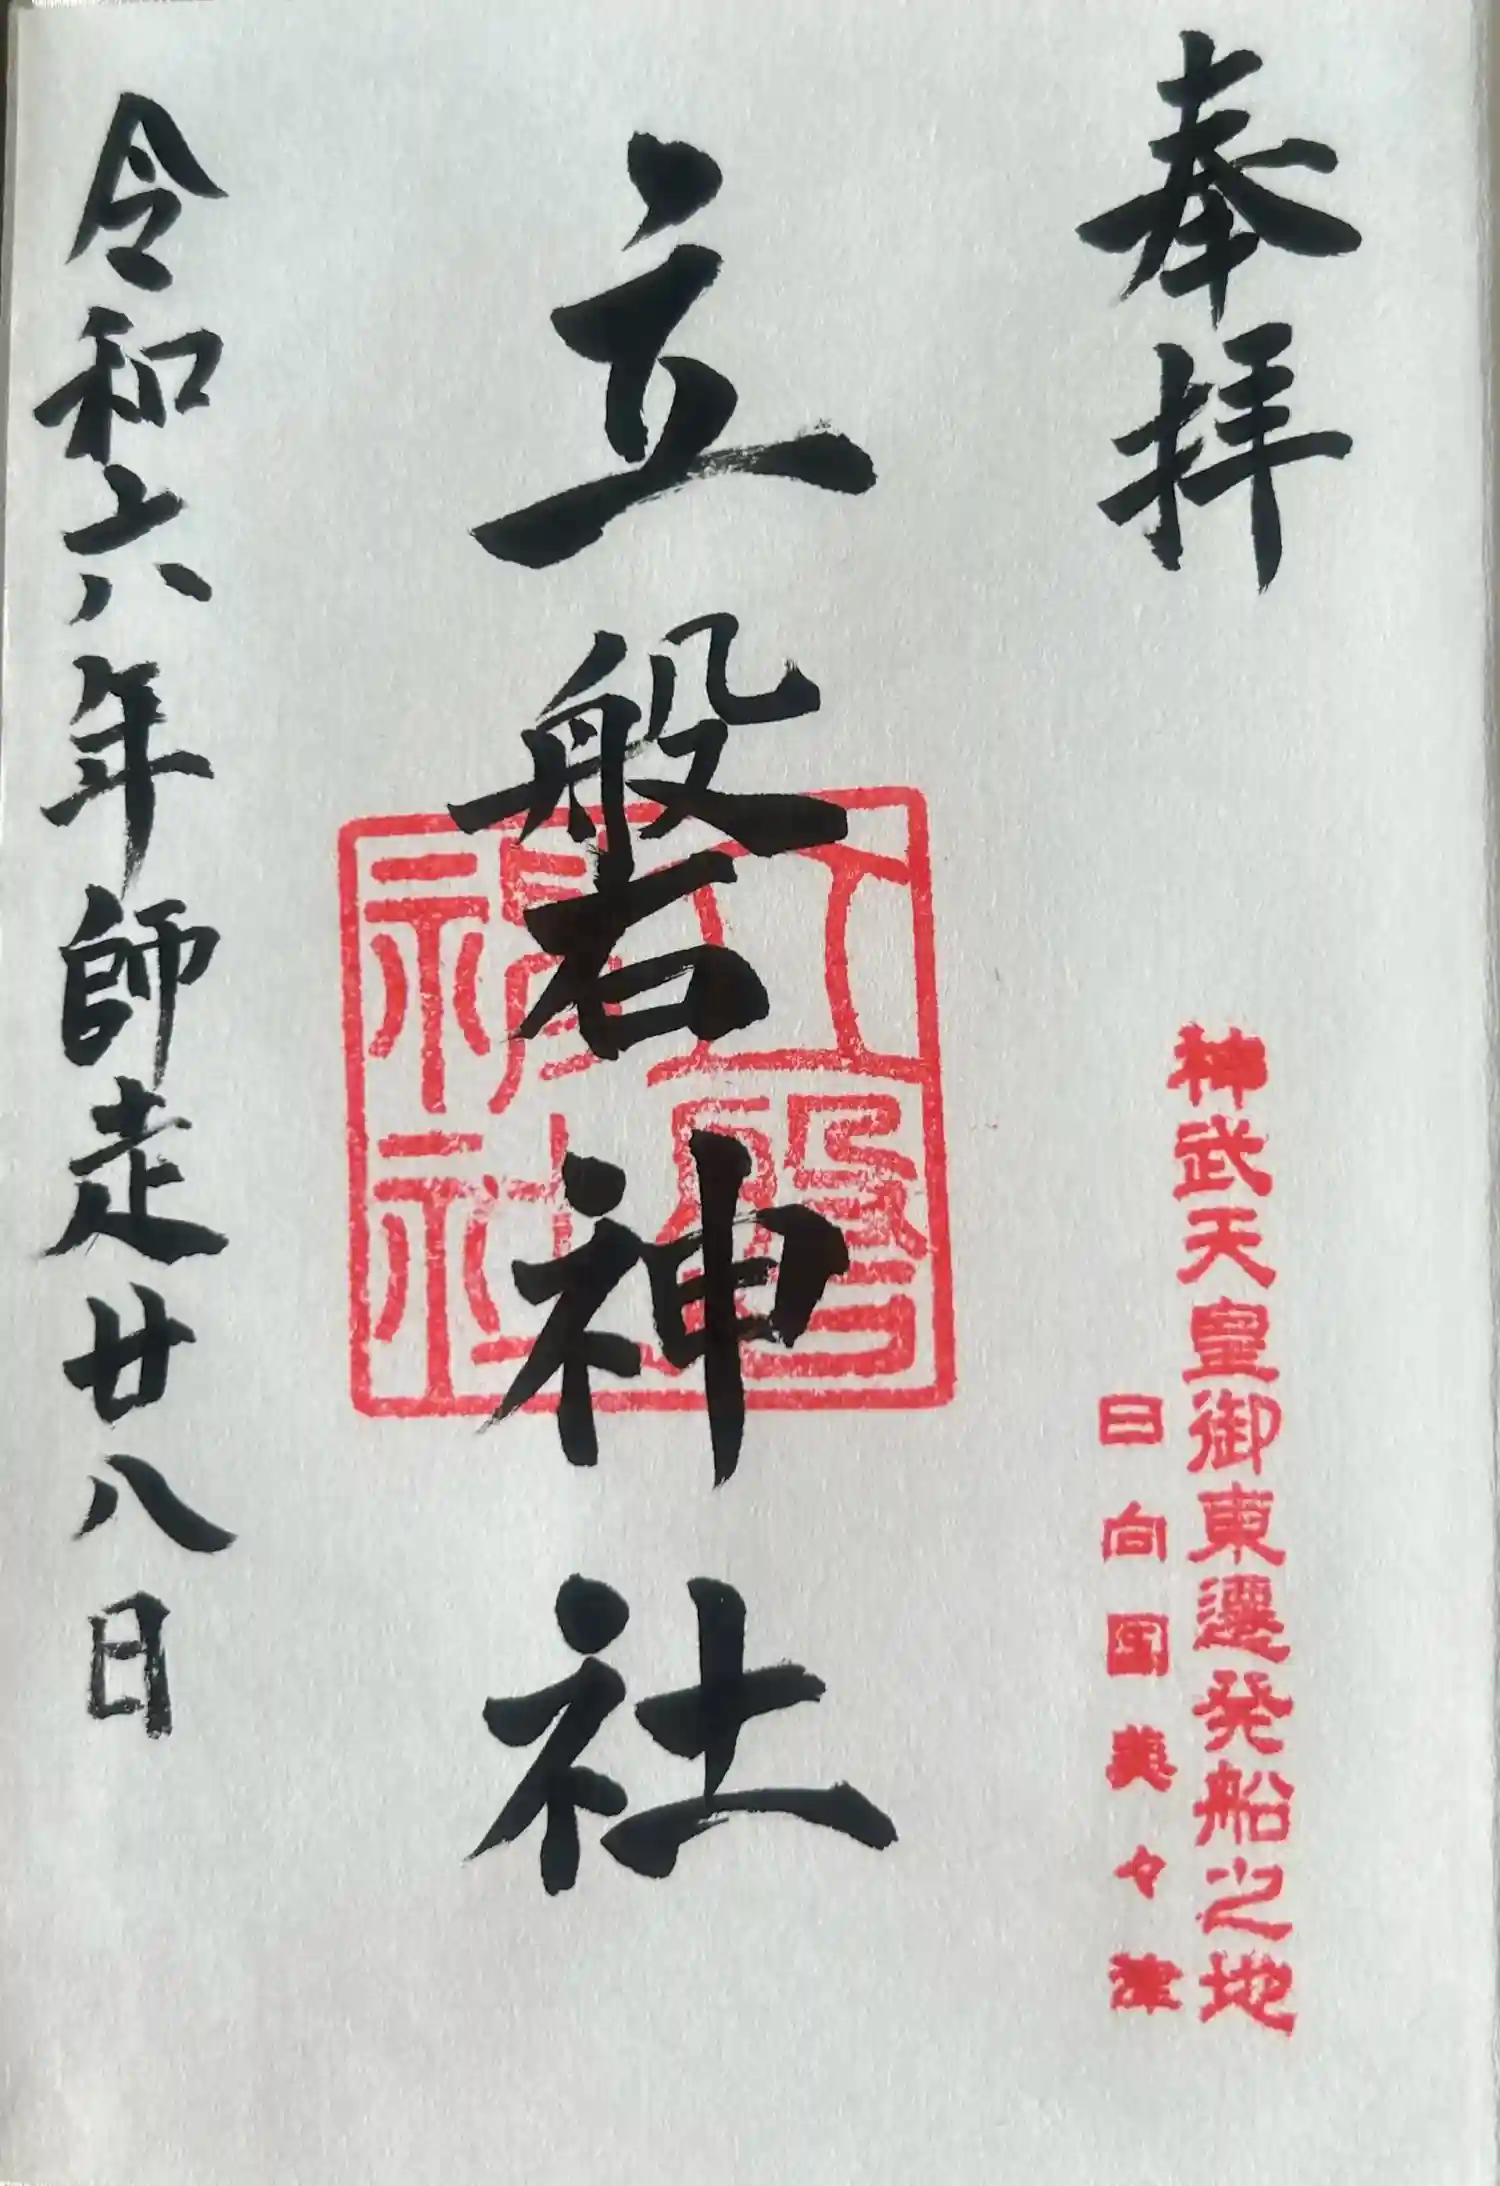 奉拝
神武天皇御東遷発船之地
日向国美々津
立磐神社
立磐
神社
令和六年師走廿八日